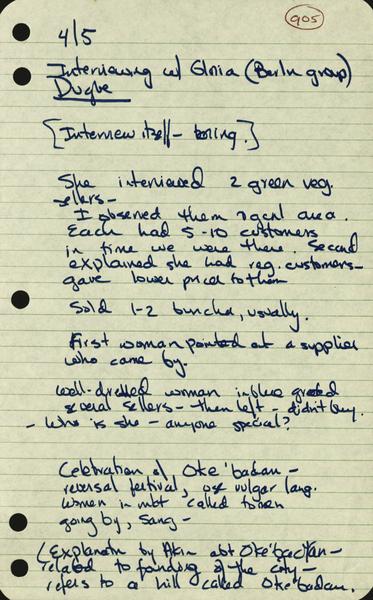 905
4/5
Interviewing w/ Gloria (Berlin group)
Dugbe
[Interview itself - boring.]
She interviewed 2 green veg.
sellers-
I observed them & gent area.
Each had 5-10 customers
in time we were there. Second
explained she had reg. customers-
gave lower price to them
Sold 1-2 bunches, usually.
First woman pointed at a supplier
who came by.
Well-dressed woman in blue greeted
several sellers - then left - didn't buy.
- Who is she - anyone special?
Celebration of Oke'badan -
reversal festival, use vulgar lang.
Women in mkt called to men
going by, sang -
(Explanation by Akin abt Oke'badan -
related to founding of the city -
refers to a hill called Oke'badan.